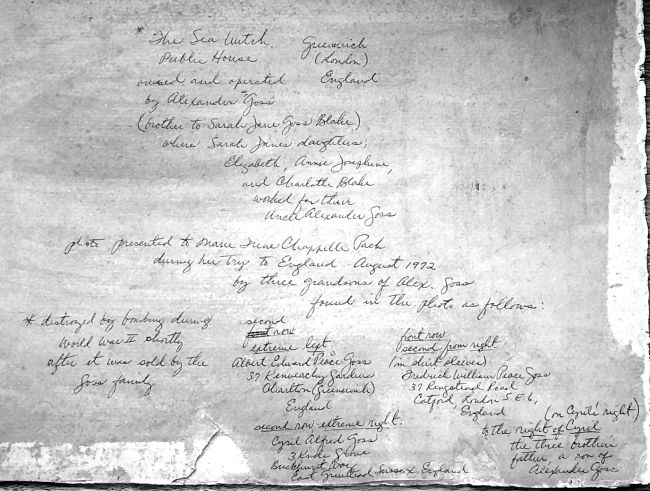 * The Sea Witch Greenwich
Public House (London)
owned and operated England
by Alexander Goss
(brother to Sarah Jane Goss Blake)
where Sarah Jane's daughters;
Elizabeth, Annie Josephine,
and Charlotte Blake
worked for their
Uncle Alexander Goss
photo presented to Marie Irene Chappelle Pack
during her trip to England - August 1972
by three grandsons of Alex. Goss
found in the photo as follows:
* distroyed by bombing during
World War II shortly
after it was sold by the
Goss family
second
front row
extreme left
Albert Edward Peace Goss
37 Gardens
Charlton (Greenwich)
England
front row
second from right
(in shirt sleeves)
Fredrick William Peace Goss
37 Ringstead Road
Catford, London S.E.6,
England
second row extreme right.
Cyril Alfred Goss
3
East Grinstead Sussex England
(on Cyril's right)
to the right of Cyril
the three brothers
father, a son of
Alexander Goss